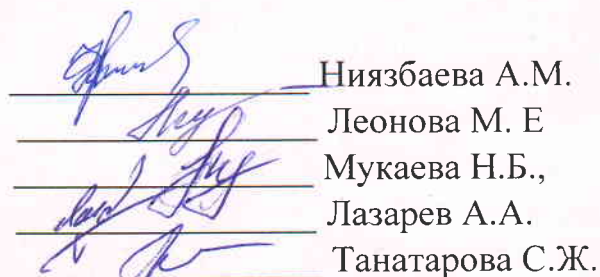 Ниязбаева А.М.
Леонова М. Е
Мукаева Н.Б.,
Лазарев А.А.
Танатарова С.Ж.